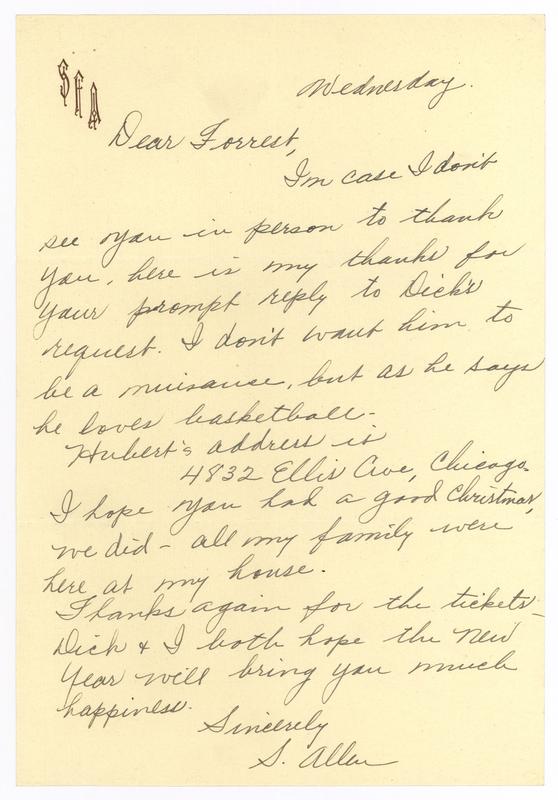 SFA
Wednesday.
Dear Forrest,
In case I don't
see you in person to thank
you, here is my thanks for
your prompt reply to Dick's
request. I don't want him to
be a nuisause, but as he says
he loves basketball-
Hubert's address is
4832 Ellis Ave, Chicago.
I hope you had a good Christmas,
we did - all my family were
here at my house.
Thanks again for the tickets-
Dick & I both hope the New
Year will bring you much
happiness.
Sincerely
S. Allen